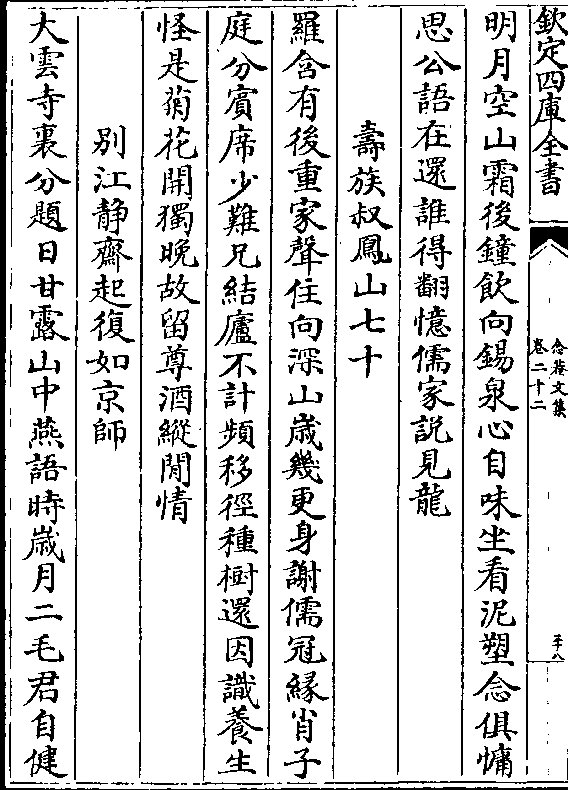 欽定四庫全書
念菴文集
卷二十二
明月空山霜後鐘飲向錫泉心自味坐看泥塑念俱慵
思公語在還誰得翻憶儒家説見龍
壽族叔鳳山七十
羅含有後重家聲住向深山歳幾更身謝儒冠緣肖子
庭分賓席少難兄結廬不計頻移徑種樹還因識養生
怪是菊花開獨晚故留尊酒縱閒情
别江静齋起復如京師
大雲寺裏分題日甘露山中燕語時歳月二毛君自健